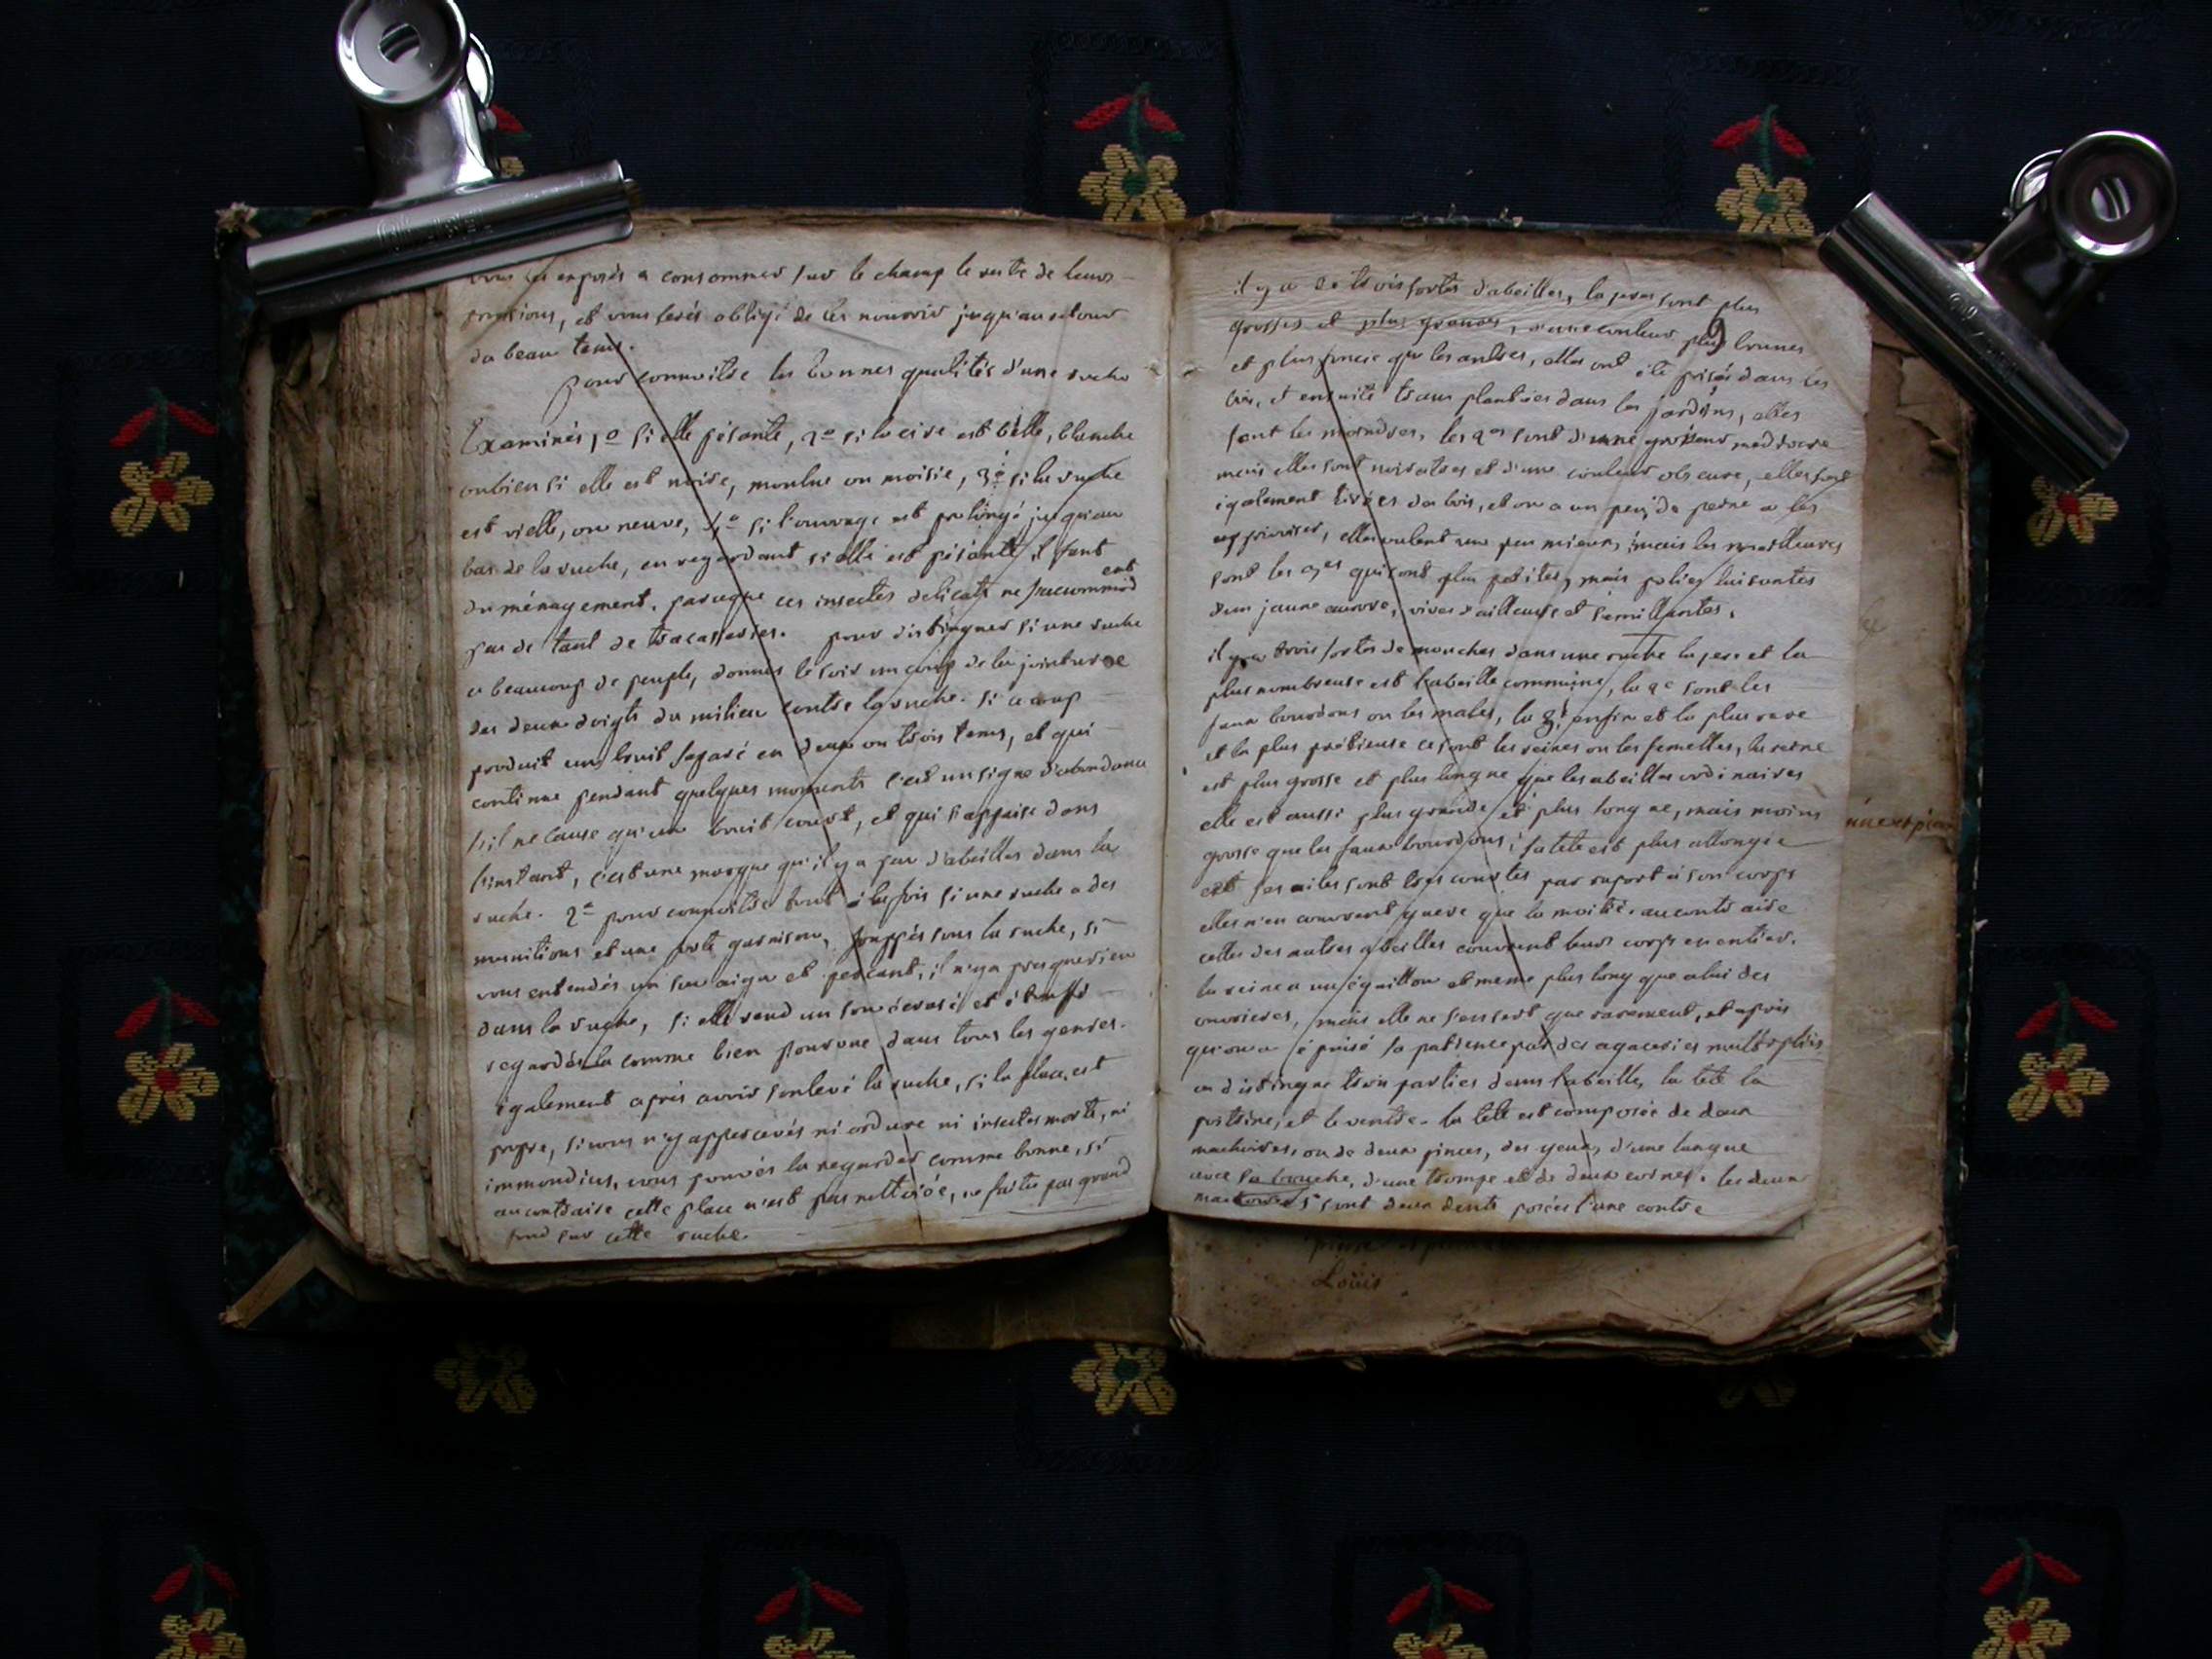 vous les exposés a consommer sur le champ le reste de leurs
provisions, et vous serés obligé de les nourrir jusqu'au retour
du beau tems.
Pour connoitre les bonnes qualités d'une ruche
Examinés, 1º si elle pésante, 2º si la cire est belle, blanche
oubien si elle est noire, moulue ou moisie, 3º si la ruche
est vielle, ou neuve, 4º si l'ouvrage est prolongé jusqu'au
bas de la ruche, en regardant si elle est pésante il faut
du ménagement, parceque ces insectes delicats ne s'accommodent
pas de tant de tracasseries. pour distinguer si une ruche
a beaucoup de peuple, donnés le soir un coup de la jointure
des deux doigts du milieu contre la ruche. si ce coup
produit un bruit separé en deux ou trois tems, et qui
continue pendant quelques moments c'est un signe d'abondance
s'il ne cause qu'un bruit court, et qui s'appaise dans
l'instant, c'est une marque qu'il y a peu d'abeilles dans la
ruche. 2º pour connoitre tout à la fois si une ruche a des
munitions et une forte garnison, frappés sous la ruche, si
vous entendés un son aigu et percant, il n'y a presque rien
dans la ruche, si elle rend un son écrasé et étouffé
regardés la comme bien pourvue dans tous les genres.
également après avoir soulevé la ruche, si la place est
propre, si vous n'y appercevés ni ordure ni insectes morts, ni
immondices, vous pouvés la regarder comme bonne, si
aucontraire cette place n'est pas nettoiée, ne faites pas grand
fond sur cette ruche.
9
il y a de trois sortes d'abeilles, les 1eres sont plus
grosses et plus grandes, d'une couleur plus brunes
et plus foncée que les autres, elles ont été prises dans les
bois, et ensuite transplantées dans les jardins, elles
sont les moindres. les 2es sont d'une grosseur mediocre
mais elles sont noiratres et d'une couleur obscure, elles sont
également tirées du bois, et on a un peu de peine a les
apprivoiser, elles valent un peu mieux, mais les meilleures
sont les 3es qui sont plus petites, mais polies luisantes
d'un jaune aurore, vives d'ailleurs et semillantes.
il y a trois sortes de mouches dans une ruche la 1ere et la
plus nombreuse est l'abeille commune, la 2e sont les
faux bourdons ou les males, la 3e enfin et la plus rare
et la plus prétieuse ce sont les reines ou les femelles, la reine
est plus grosse et plus longue que les abeilles ordinaires
elle est aussi plus grande et plus longue, mais moins
grosse que les faux bourdons; sa tete est plus allongée
et ses ailes sont tres courtes par raport à son corps
elles n'en couvrent guere que la moitié. aucontraire
celles des autres abeilles couvrent leurs corps en entier.
la reine a un éguillon et meme plus long que celui des
ouvrieres, mais elle ne s'en sert que rarement, et après
qu'on a épuisé sa patience par des agaceries multipliés
on distingue trois parties dans l'abeille, la tete la
poitrine, et le ventre. la tete est composée de deux
machoires, ou de deux pinces, des yeux, d'une langue
avec sa bouche, d'une trompe et de deux cornes. les deux
machoires sont deux dents posées l'une contre
Loüis